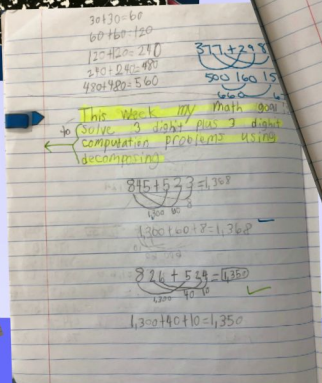 30+30=60
60+60=120
120+120=240
240+240=480
480+480=560
377+298
500 160 15
660
This week my math goal:
to solve 3 digit plus 3 digit
computation problems using
decomposing
845+523=1,368
1,300 60 8
1,300+60+8=1,368
826+524=1,350
1,300 40 10
1,300+40+10=1,350